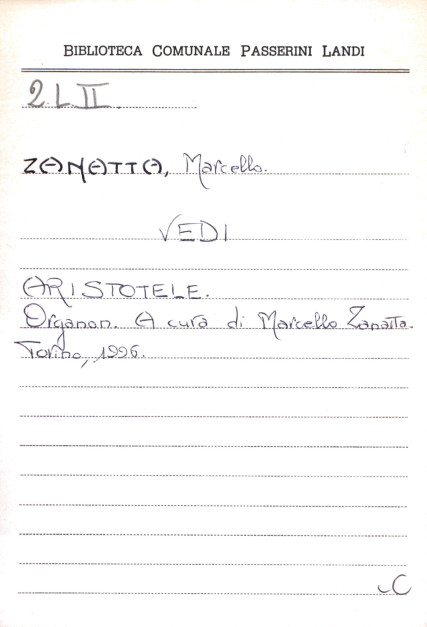 BIBLIOTECA COMUNALE PASSERINI LANDI
2 L II
ZANATTA, Marcello.
VEDI
ARISTOTELE.
Organon. A cura di Marcello Zanatta.
Torino, 1996.